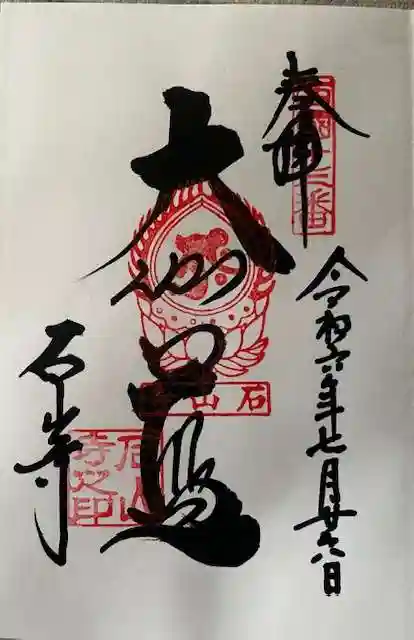 奉拝
西国十三番
令和六年七月廿六日
大伽藍
石山寺
石山寺
石山寺之印